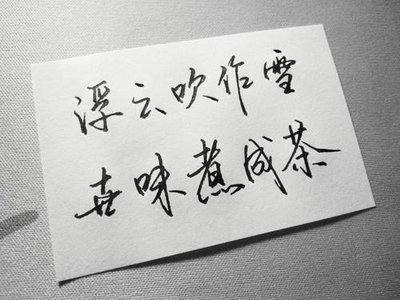 浮云吹作雪
世味煮成茶